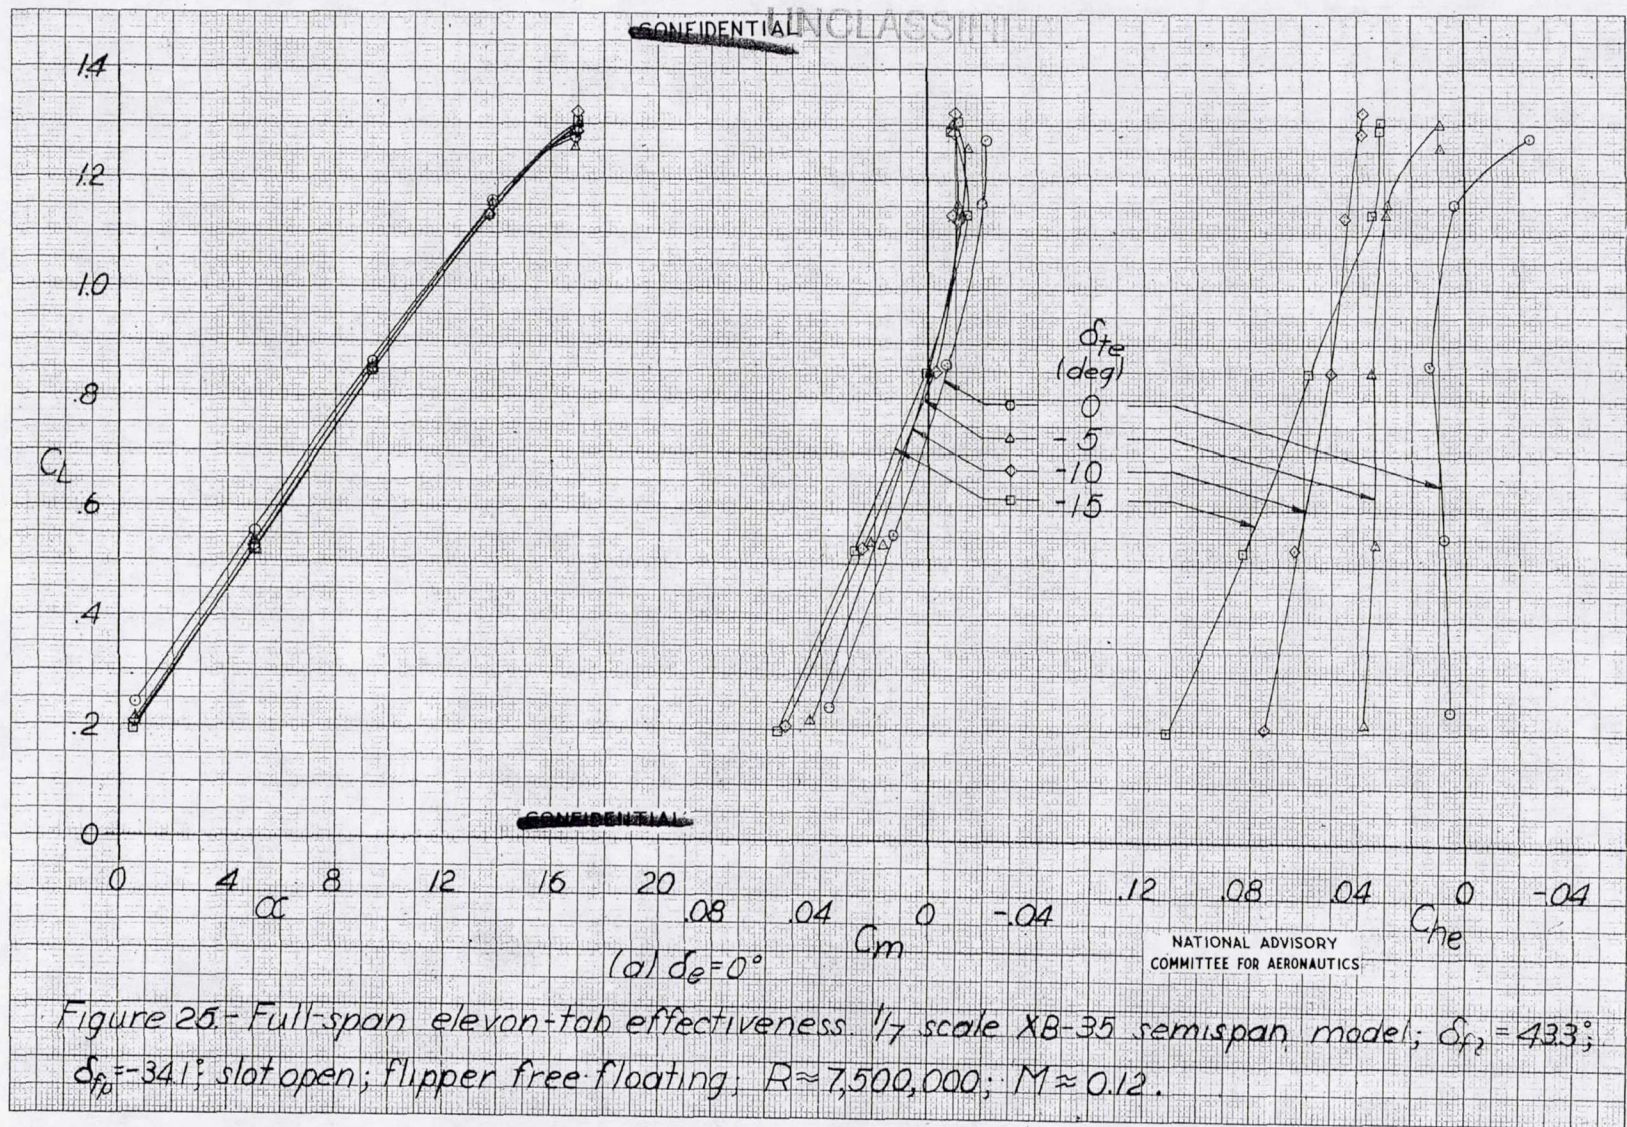 UNCLASSIFI
CONFIDENTIAL
1.4
1.2
1.0
.8
C_L
.6
.4
.2
0
δte
(deg)
0
-5
-10
-15
CONFIDENTIAL
0 4 8 12 16 20
α
.08 .04 0 -.04
Cm
.12 .08 .04 0 -.04
Che
NATIONAL ADVISORY
COMMITTEE FOR AERONAUTICS
(a) δe=0°
Figure 25.- Full-span elevon-tab effectiveness. 1/7 scale XB-35 semispan model; = 43.3°;
=-34.1°; slot open; flipper free-floating; R≈7,500,000; M≈0.12.